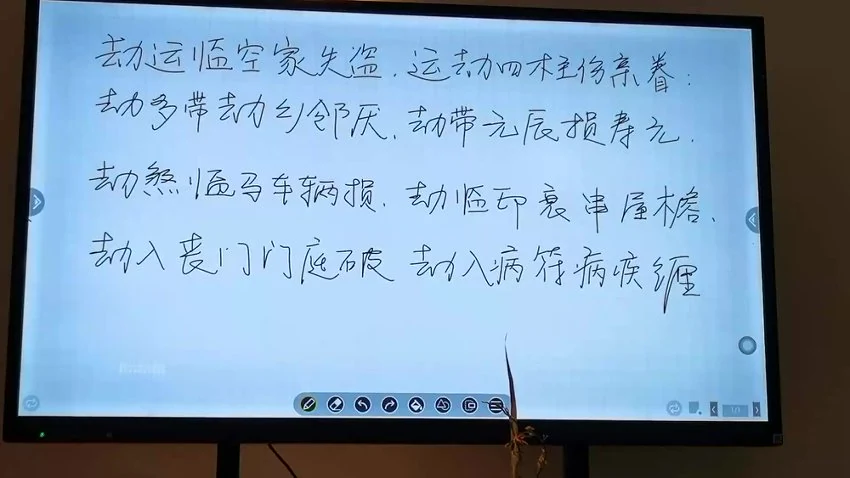 劫运临空家失盗．运劫四柱伤亲眷：
劫多带劫乡邻厌．劫带元辰损寿元．
劫煞临马车辆损．劫临印衰串屋檐、
劫入丧门门庭破 劫入病符病疾缠
1/1